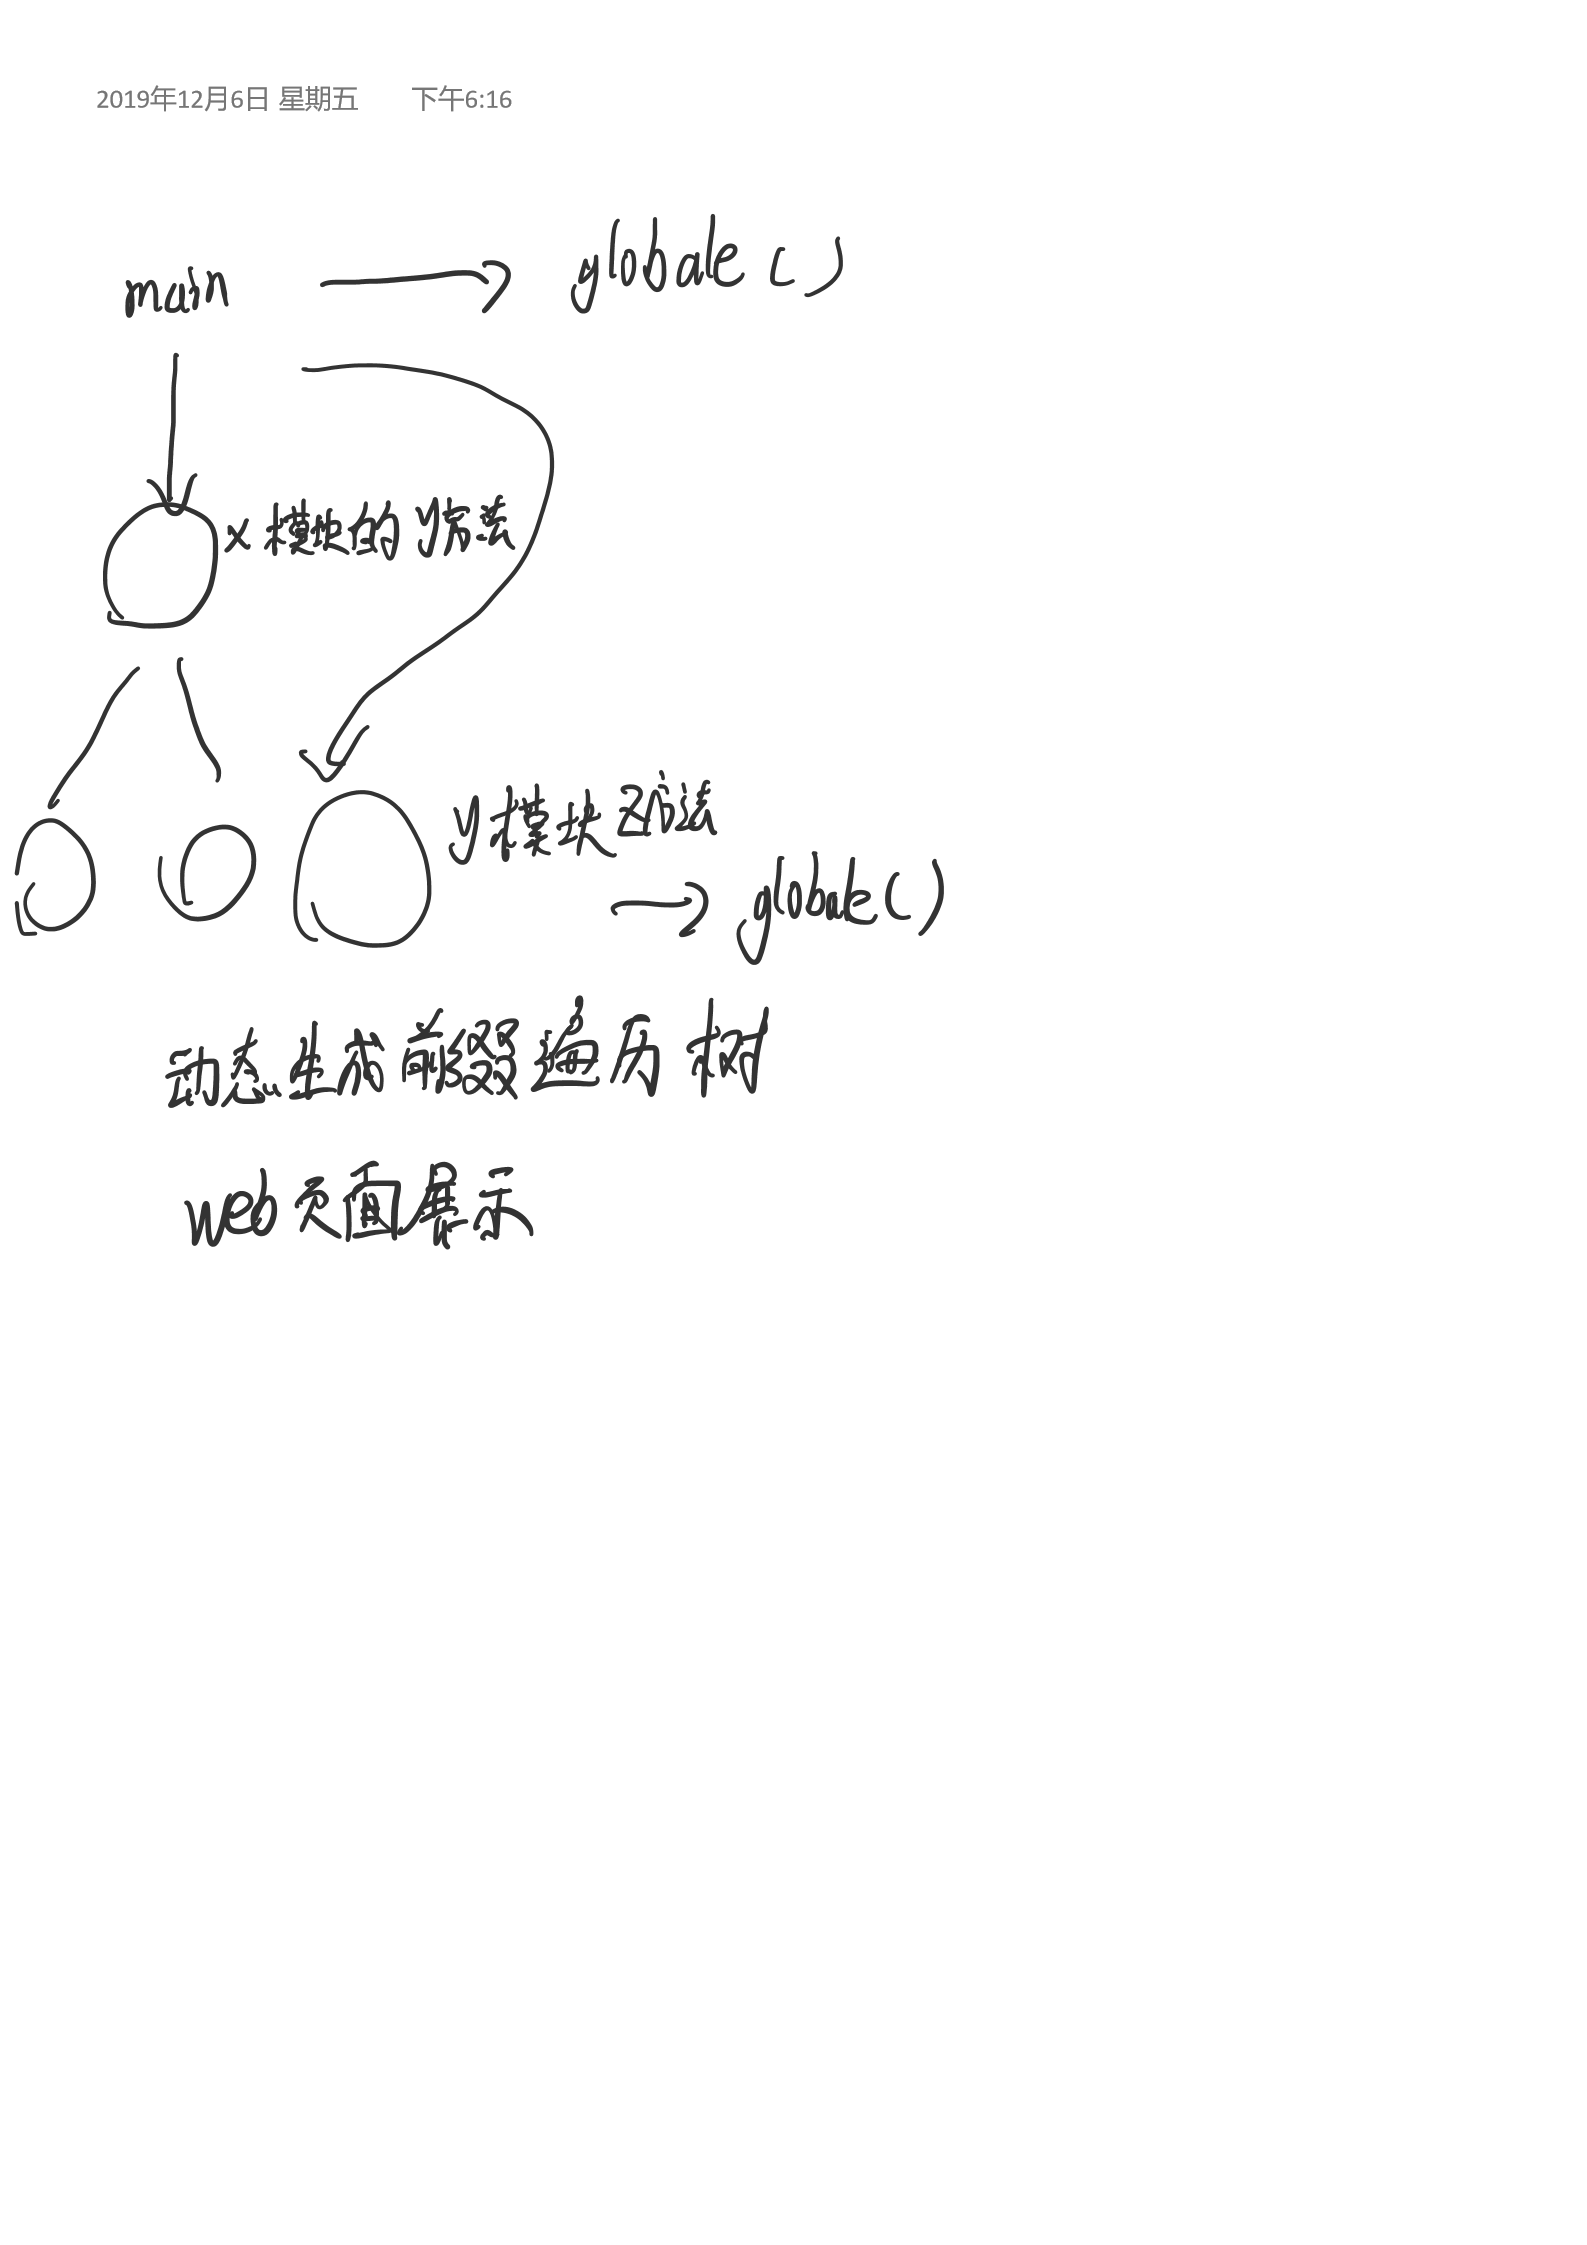 2019年12月6日 星期五 下午6:16
main
globale()
x模块的y方法
y模块Z方法
globale()
动态生成前缀遍历树
web页面展示